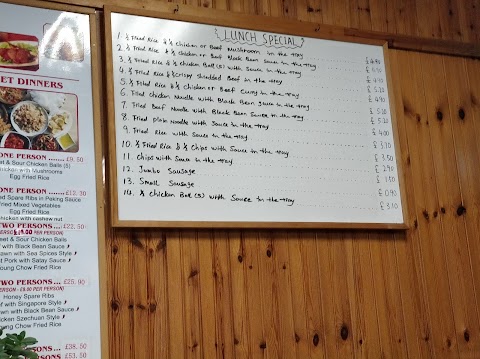 LUNCH SPECIAL
1. ½ Fried Rice & ½ chicken or Beef Mushroom in the tray
2. ½ Fried Rice & ½ chicken or Beef Black Bean sauce in the tray
3. ½ Fried Rice & ½ chicken Ball (5) with Sauce in the tray
4. ½ Fried Rice & ½ crispy shredded Beef in the tray
5. ½ Fried Rice & ½ chicken or Beef Curry in the tray
6. Fried chicken Noodle with Black Bean Sauce in the tray
7. Fried Beef Noodle with Black Bean Sauce in the tray
8. Fried plain Noodle with Sauce in the tray
9. Fried Rice with Sauce in the tray
10. ½ Fried Rice & ½ Chips with Sauce in the tray
11. Chips with Sauce in the tray
12. Jumbo Sausage
13. Small Sausage
14. ½ chicken Ball (5) with Sauce in the tray
£ 5.20
£ 4.00
£ 3.10
£ 0.90
£ 3.10
ET DINNERS
ONE PERSON ........ £9.50
et & Sour Chicken Balls (5)
chicken with Mushrooms
Egg Fried Rice
ONE PERSON ....... £12.30
ed Spare Ribs in Peking Sauce
Fried Mixed Vegetables
Egg Fried Rice
chicken with cashew nut
TWO PERSONS... £22.50
£19.00 PER PERSON)
et & Sour Chicken Balls
f with Black Bean Sauce
awn with Sea Spices Style
t Pork with Satay Sauce
oung Chow Fried Rice
TWO PERSONS... £25.90
PERSON - £8.90 PER PERSON)
Honey Spare Ribs
ef with Singapore Style
awn with Black Bean Sauce
icken Szechuan Style
ung Chow Fried Rice
SONS... £38.50
SONS... £53.50